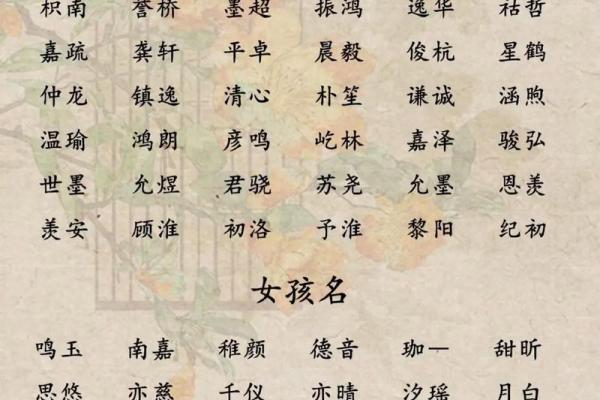 枳南 誉桥 墨超 振鸿 逸华 祜哲
嘉疏 龚轩 平卓 晨毅 俊杭 星鹤
仲龙 镇逸 清心 朴笙 谦诚 涵煦
温瑜 鸿朗 彦鸣 屹林 嘉泽 骏弘
世墨 允煜 君骁 苏尧 允墨 恩羡
羡安 顾淮 初洛 予淮 黎阳 纪初
女孩名
鸣玉 南嘉 稚颜 德音 珈一 甜昕
思悠 亦慈 千仪 亦晴 汐瑶 月白